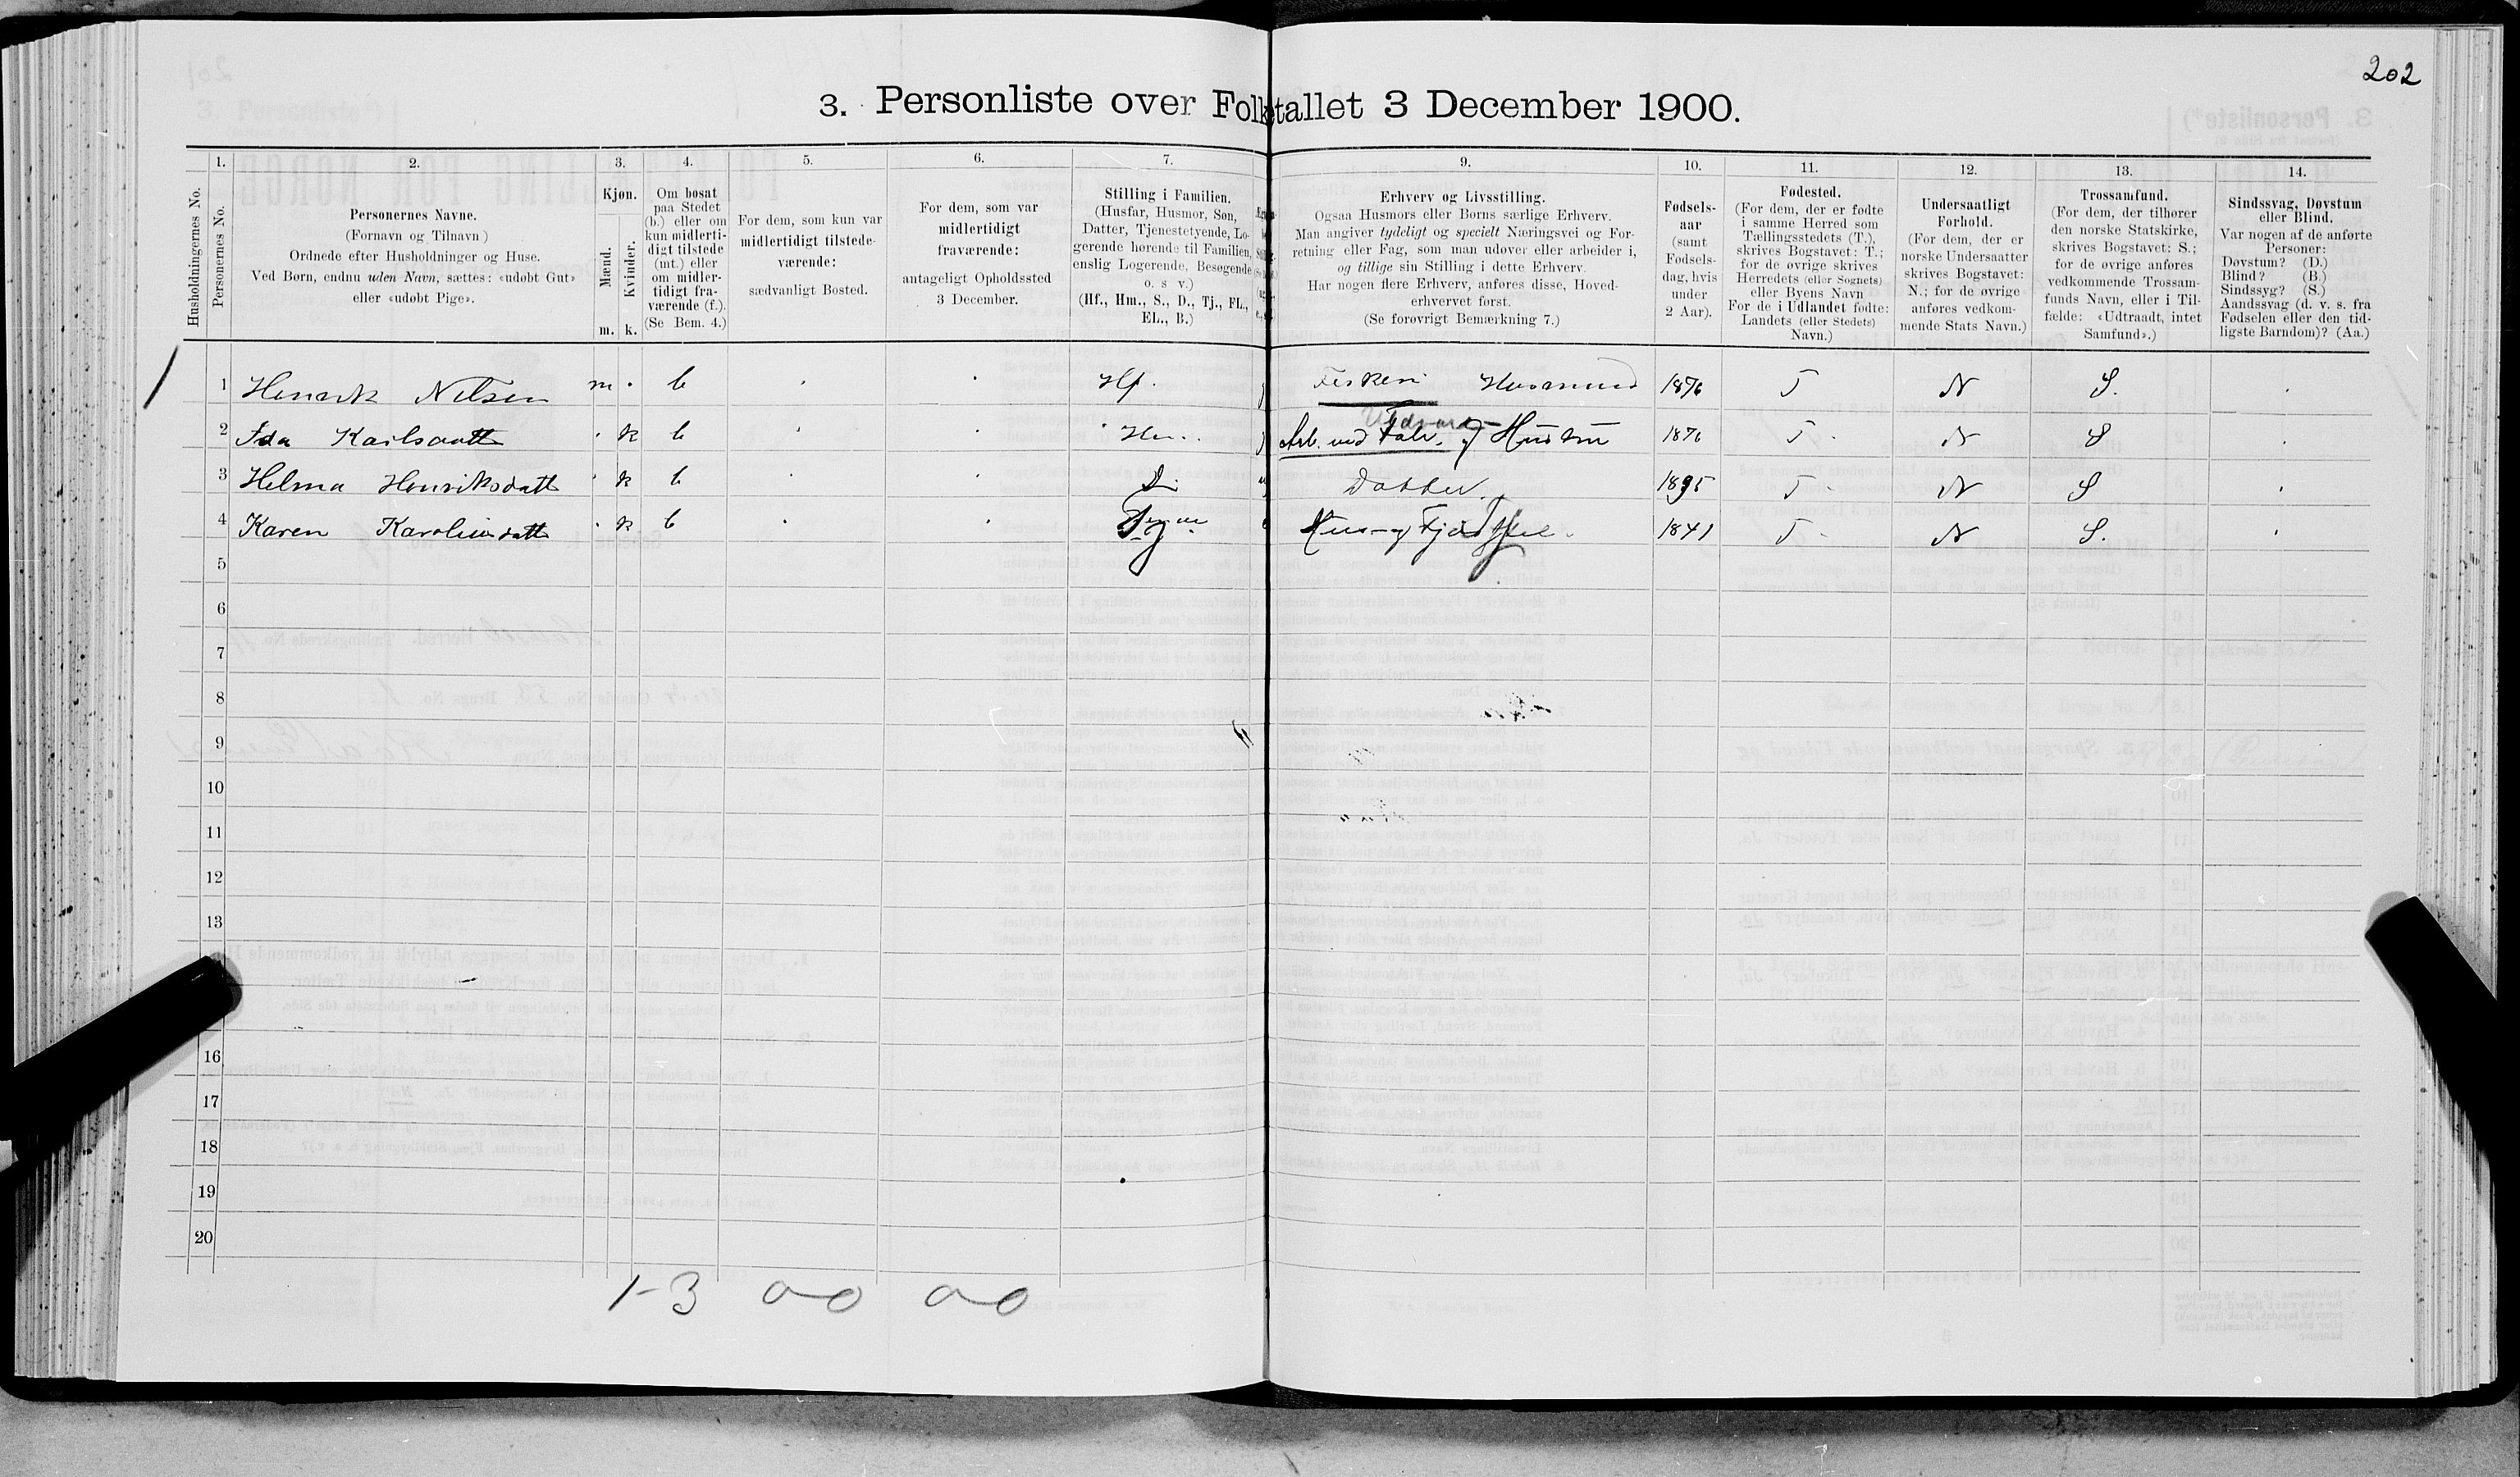 202
3. Personliste over Folketallet 3 December 1900.
1. 2. 3. 4. 5. 6. 7. 9. 10. 11. 12. 13. 14.
Husholdningernes No.
Personernes No.
Personernes Navne.
(Fornavn og Tilnavn)
Ordnede efter Husholdninger og Huse.
Ved Børn, endnu uden Navn, sættes: «udøbt Gut»
eller «udøbt Pige».
Kjøn.
Mænd.
Kvinder.
m. k.
Om bosat
paa Stedet
(b.) eller om
kun midlerti-
digt tilstede
(mt.) eller
om midler-
tidigt fra-
værende (f.).
(Se Bem. 4.)
For dem, som kun var
midlertidigt tilstede-
værende:
sædvanligt Bosted.
For dem, som var
midlertidigt
fraværende:
antageligt Opholdssted
3 December.
Stilling i Familien.
(Husfar, Husmor, Søn,
Datter, Tjenestetyende, Lo-
gerende hørende til Familien,
enslig Logerende, Besøgende
o. s v.)
(Hf., Hm., S., D., Tj., FL.,
EL., B.)
Erhverv og Livsstilling.
Ogsaa Husmors eller Børns særlige Erhverv.
Man angiver tydeligt og specielt Næringsvei og For-
retning eller Fag, som man udøver eller arbeider i,
og tillige sin Stilling i dette Erhverv.
Har nogen flere Erhverv, anføres disse, Hoved-
erhvervet først.
(Se forøvrigt Bemærkning 7.)
Fødsels-
aar
(samt
Fødsels-
dag, hvis
under
2 Aar).
Fødested.
(For dem, der er fødte
i samme Herred som
Tællingsstedets (T.),
skrives Bogstavet: T.;
for de øvrige skrives
Herredets (eller Sognets)
eller Byens Navn
For de i Udlandet fødte:
Landets (eller Stedets)
Navn.)
Undersaatligt
Forhold.
(For dem, der er
norske Undersaatter
skrives Bogstavet:
N.; for de øvrige
anføres vedkom-
mende Stats Navn.)
Trossamfund.
(For dem, der tilhører
den norske Statskirke,
skrives Bogstavet: S.;
for de øvrige anføres
vedkommende Trossam-
funds Navn, eller i Til-
fælde: «Udtraadt, intet
Samfund».)
Sindssvag, Døvstum
eller Blind.
Var nogen af de anførte
Personer:
Døvstum? (D.)
Blind? (B.)
Sindssyg? (S.)
Aandssvag (d. v. s. fra
Fødselen eller den tid-
ligste Barndom)? (Aa.)
1 Henrik Nilsen m. b Hf. Fiskeri Husmand 1876 T N S.
2 Ida Karlsdatt k b Hm. Arb. ved og Hustru 1876 T N S
3 Helma Henriksdatt k b D. Datter. 1895 T N S
4 Karen k b Tj Hus- og Fjøsstel. 1841 T N S.
5
6
7
8
9
10
11
12
13
16
17
18
19
20
1-3 0-0 0-0